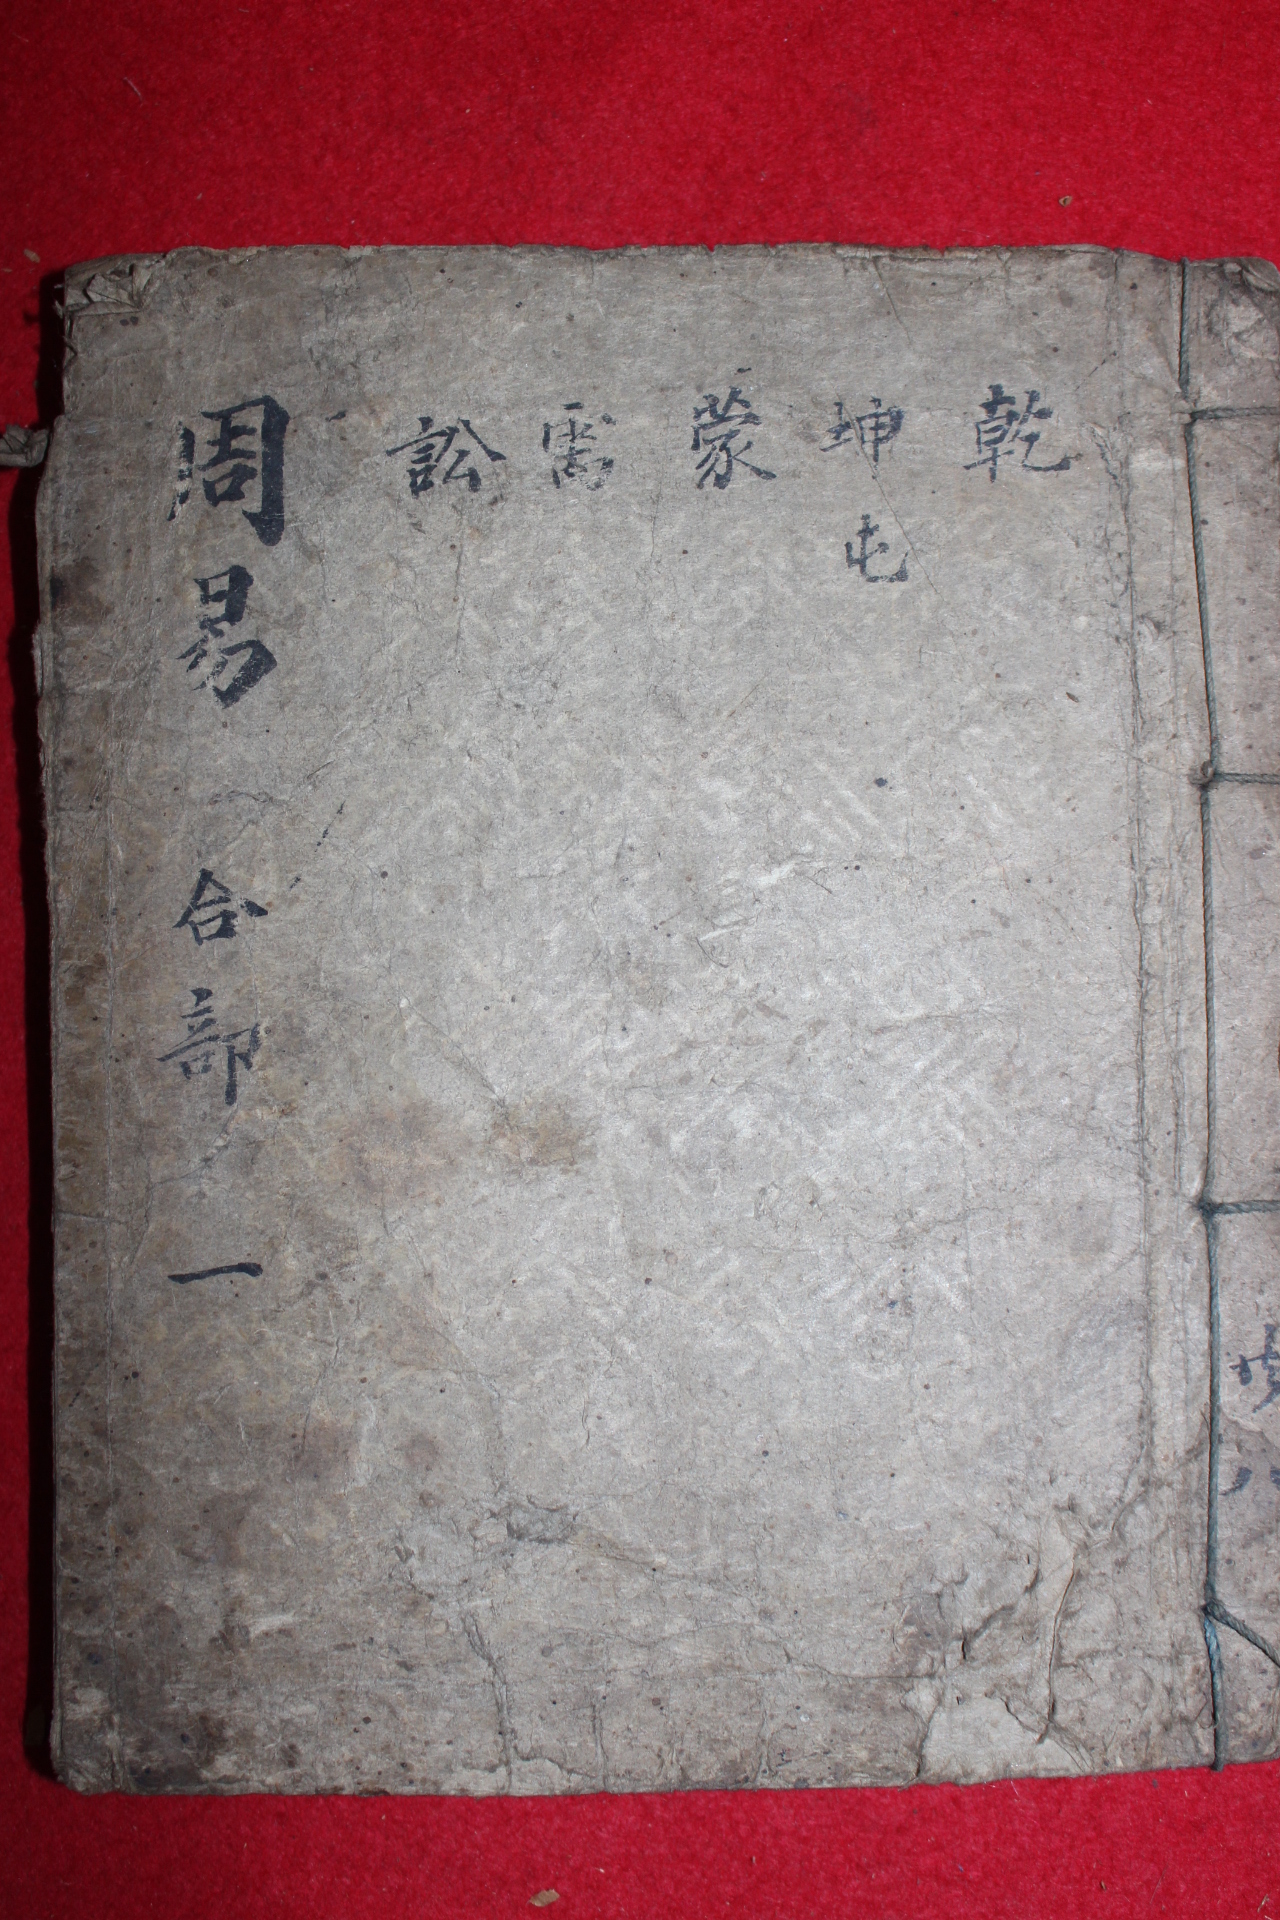 乾
坤
屯
蒙
需
訟
周易 合部 一